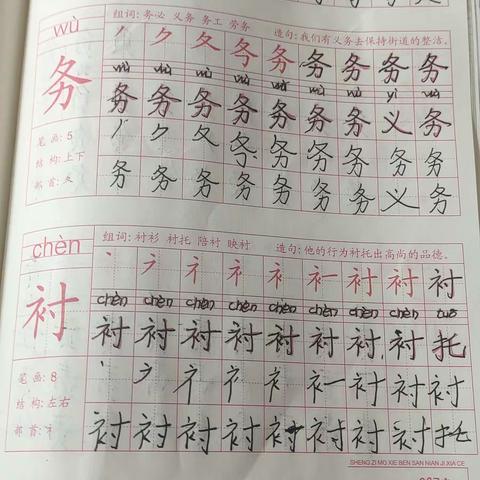 wù
组词: 务必 义务 务工 劳务 造句: 我们有义务去保持街道的整洁。
务
丿 ク 夂 冬 务 务 务 务 务
wù wù wù wù wù wù wù yì wù
务 务 务 务 务 务 务 义 务
笔 画: 5
结 构: 上下
部 首: 夂
丿 ク 夂 务 务 务 务 务 务
务 务 务 务 务 务 务 义 务
chèn
组词: 衬衫 衬托 陪衬 映衬 造句: 他的行为衬托出高尚的品德。
衬
丶 衤 衬 衬 衬
chèn chèn chèn chèn chèn chèn chèn chèn tuō
衬 衬 衬 衬 衬 衬 衬 衬 托
笔 画: 8
结 构: 左右
部 首: 衤
丶 衤 衬 衬 衬
衬 衬 衬 衬 衬 衬 衬 衬 托
SHENG ZI MO XIE BEN SAN NIAN JI XIA CE